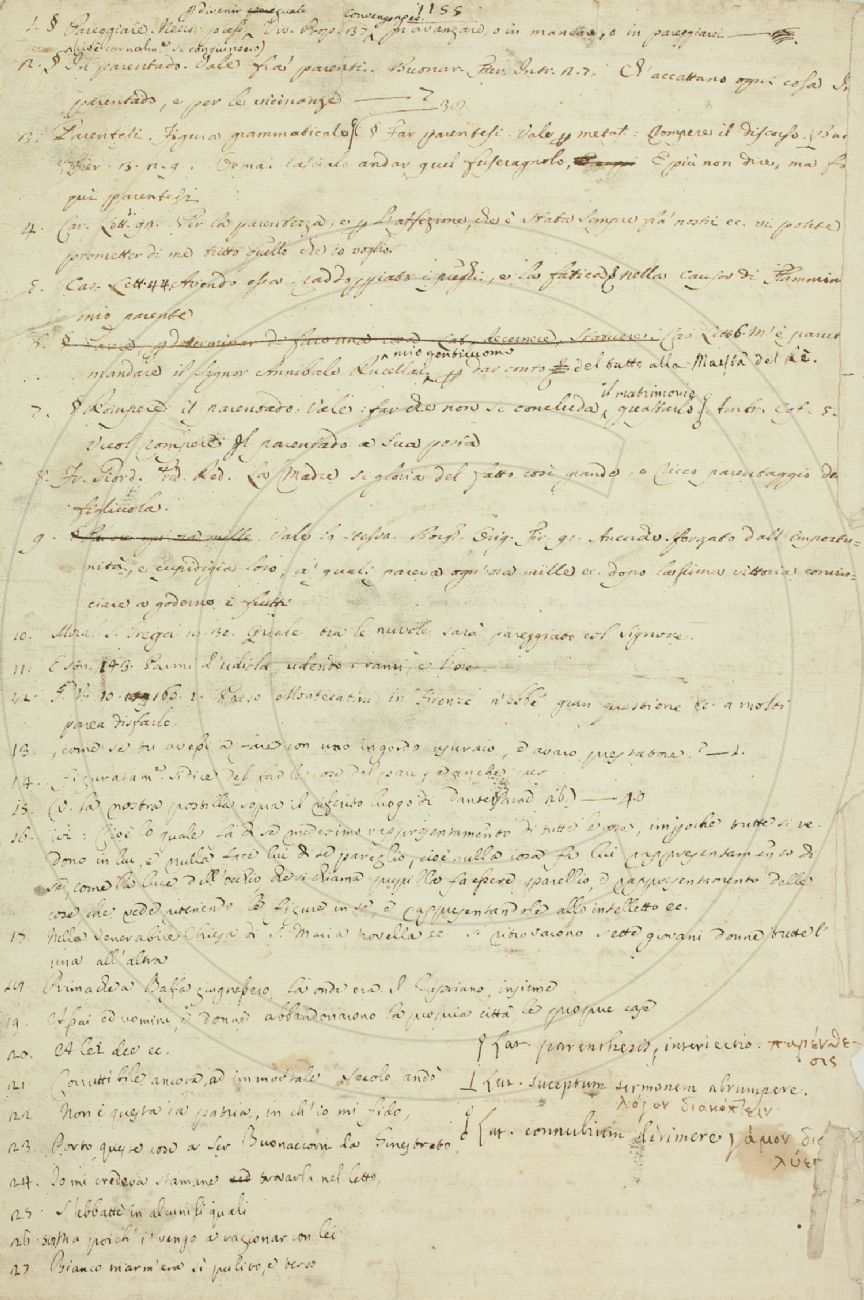 1188
§ divenir eguale
1. § Pareggiare. Neutr. pass. Viv. Prop. 137. convengon che In avanzare, o in mancare, o in pareggiarsi
2. § In parentado. Vale fra' parenti. Buonar. Fier. Intr. 2. 7. Ch'accattano ogni cosa In
parentado, e per le vicinanze — 7
3. Parentesi. Figura grammaticale § Far parentesi. Vale p metaf: Rompere il discorso. Buo
Fier. 3. 2. 9. Ormai lascialo andar quel fuseragnolo, E più non dire, ma fa
qui parentesi
4. Car. Lett. 92. Per la parentezza, e p l'affezione, che è stata sempre fra' nostri ec. vi potete
prometter di me tutto quello che io voglio.
5. Car. Lett. 44. Avendo essa raddoppiato i prieghi, e la fatica nella causa di Flamminio
mio parente
6. § Car. Lett. 6. M'è parut
mandare il Signor Annibale Rucellai mio gentiluomo p dar conto del tutto alla Maestà del Re.
7. § Rompere il parentado. Vale: far che non si concluda il matrimonio, guastarlo. Ambr. Cof. 5.
Vuol rompere Il parentado a sua posta
8. Fr. Giord. Pred. Red. La Madre si gloria del fatto così grande, e ricco parentaggio della
figliuola.
9. Vale lo stesso. Borgh. Orig. Fir. 91. Avendo forzato dall'importu-
nità, e cupidigia loro, a' quali pareva ogn'ora mille ec. dopo l'ultima vittoria comin-
ciare a goderne i frutti
10. Moral. S. Greg. Quale tra le nuvole sarà pareggiato col Signore.
11. E son. 143. Parmi d'udirla, udendo i rami, e l'ore
12. G. V. 10. 160. 1. Parso Montecatini in Firenze n'ebbe gran quistione ec. a molti
parea disfarlo.
13. , come se tu avessi a fare con uno ingordo usuraio, e avaro prestatore. — 1.
14. Figuratam. si dice del far le cose del pari, ed anche per
15. (V. la nostra postilla sopra il riferito luogo di Dante Parad. 26.) — 40
16. ivi: Cioè lo quale fa di se medesimo rappresentamento di tutte le cose, imperoche tutte si ve-
dono in lui, e nulla face lui di sè pareglio, cioè nulla cosa fa lui rappresentamento di
sè, come la luce dell'occhio che si chiama pupilla fa essere parellio, e rappresentamento delle
cose che vede ritenendo le figure in sè, e rappresentandole allo intelletto ec.
17. Nella venerabile Chiesa di S. Maria novella ec. si ritrovarono sette giovani donne tutte l'
una all'altra
18. Prima che a Baffa giugnessero, là onde era il Cipriano, insieme
19. Assai ed uomini, e donne abbandonarono la propria città le proprie case
20. A lei dee ec.
21. Corrutibile ancora, ad immortale Secolo andò
22. Non è questa la patria, in ch'io mi fido,
23. Porto queste cose a Ser Buonaccorri da Ginestreto,
24. Io mi credeva stamane trovarla nel letto,
25. S'abbatte in alcuni si quali
26. poich' i' vengo a ragionar con lei
27. Bianco marm'era sì pulito, e terso
§ Lat. parenthesis, interiectio. παρένθε-
σις
Lat. susceptum sermonem abrumpere.
λόγον διακόπτειν
§ Lat. connubium dirimere γάμον δια
λύει